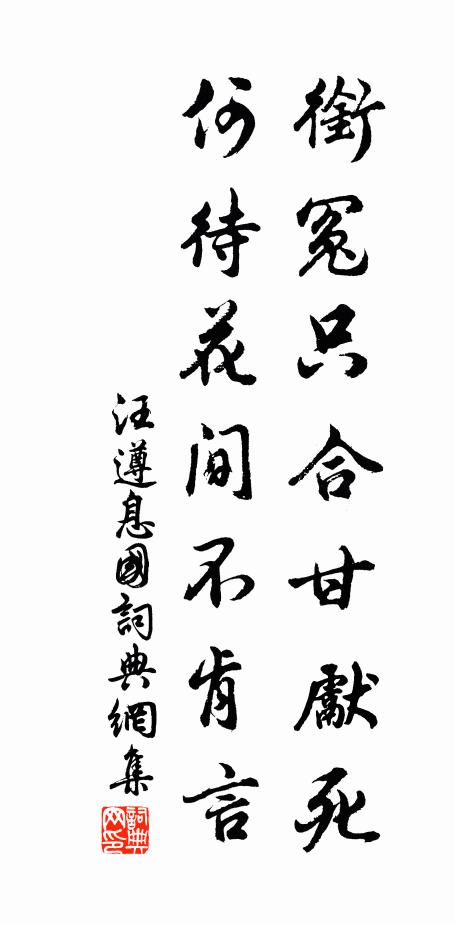 銜冤只合甘獻死
何待花間不肯言
汪遵息國詞典網集
詞典網印